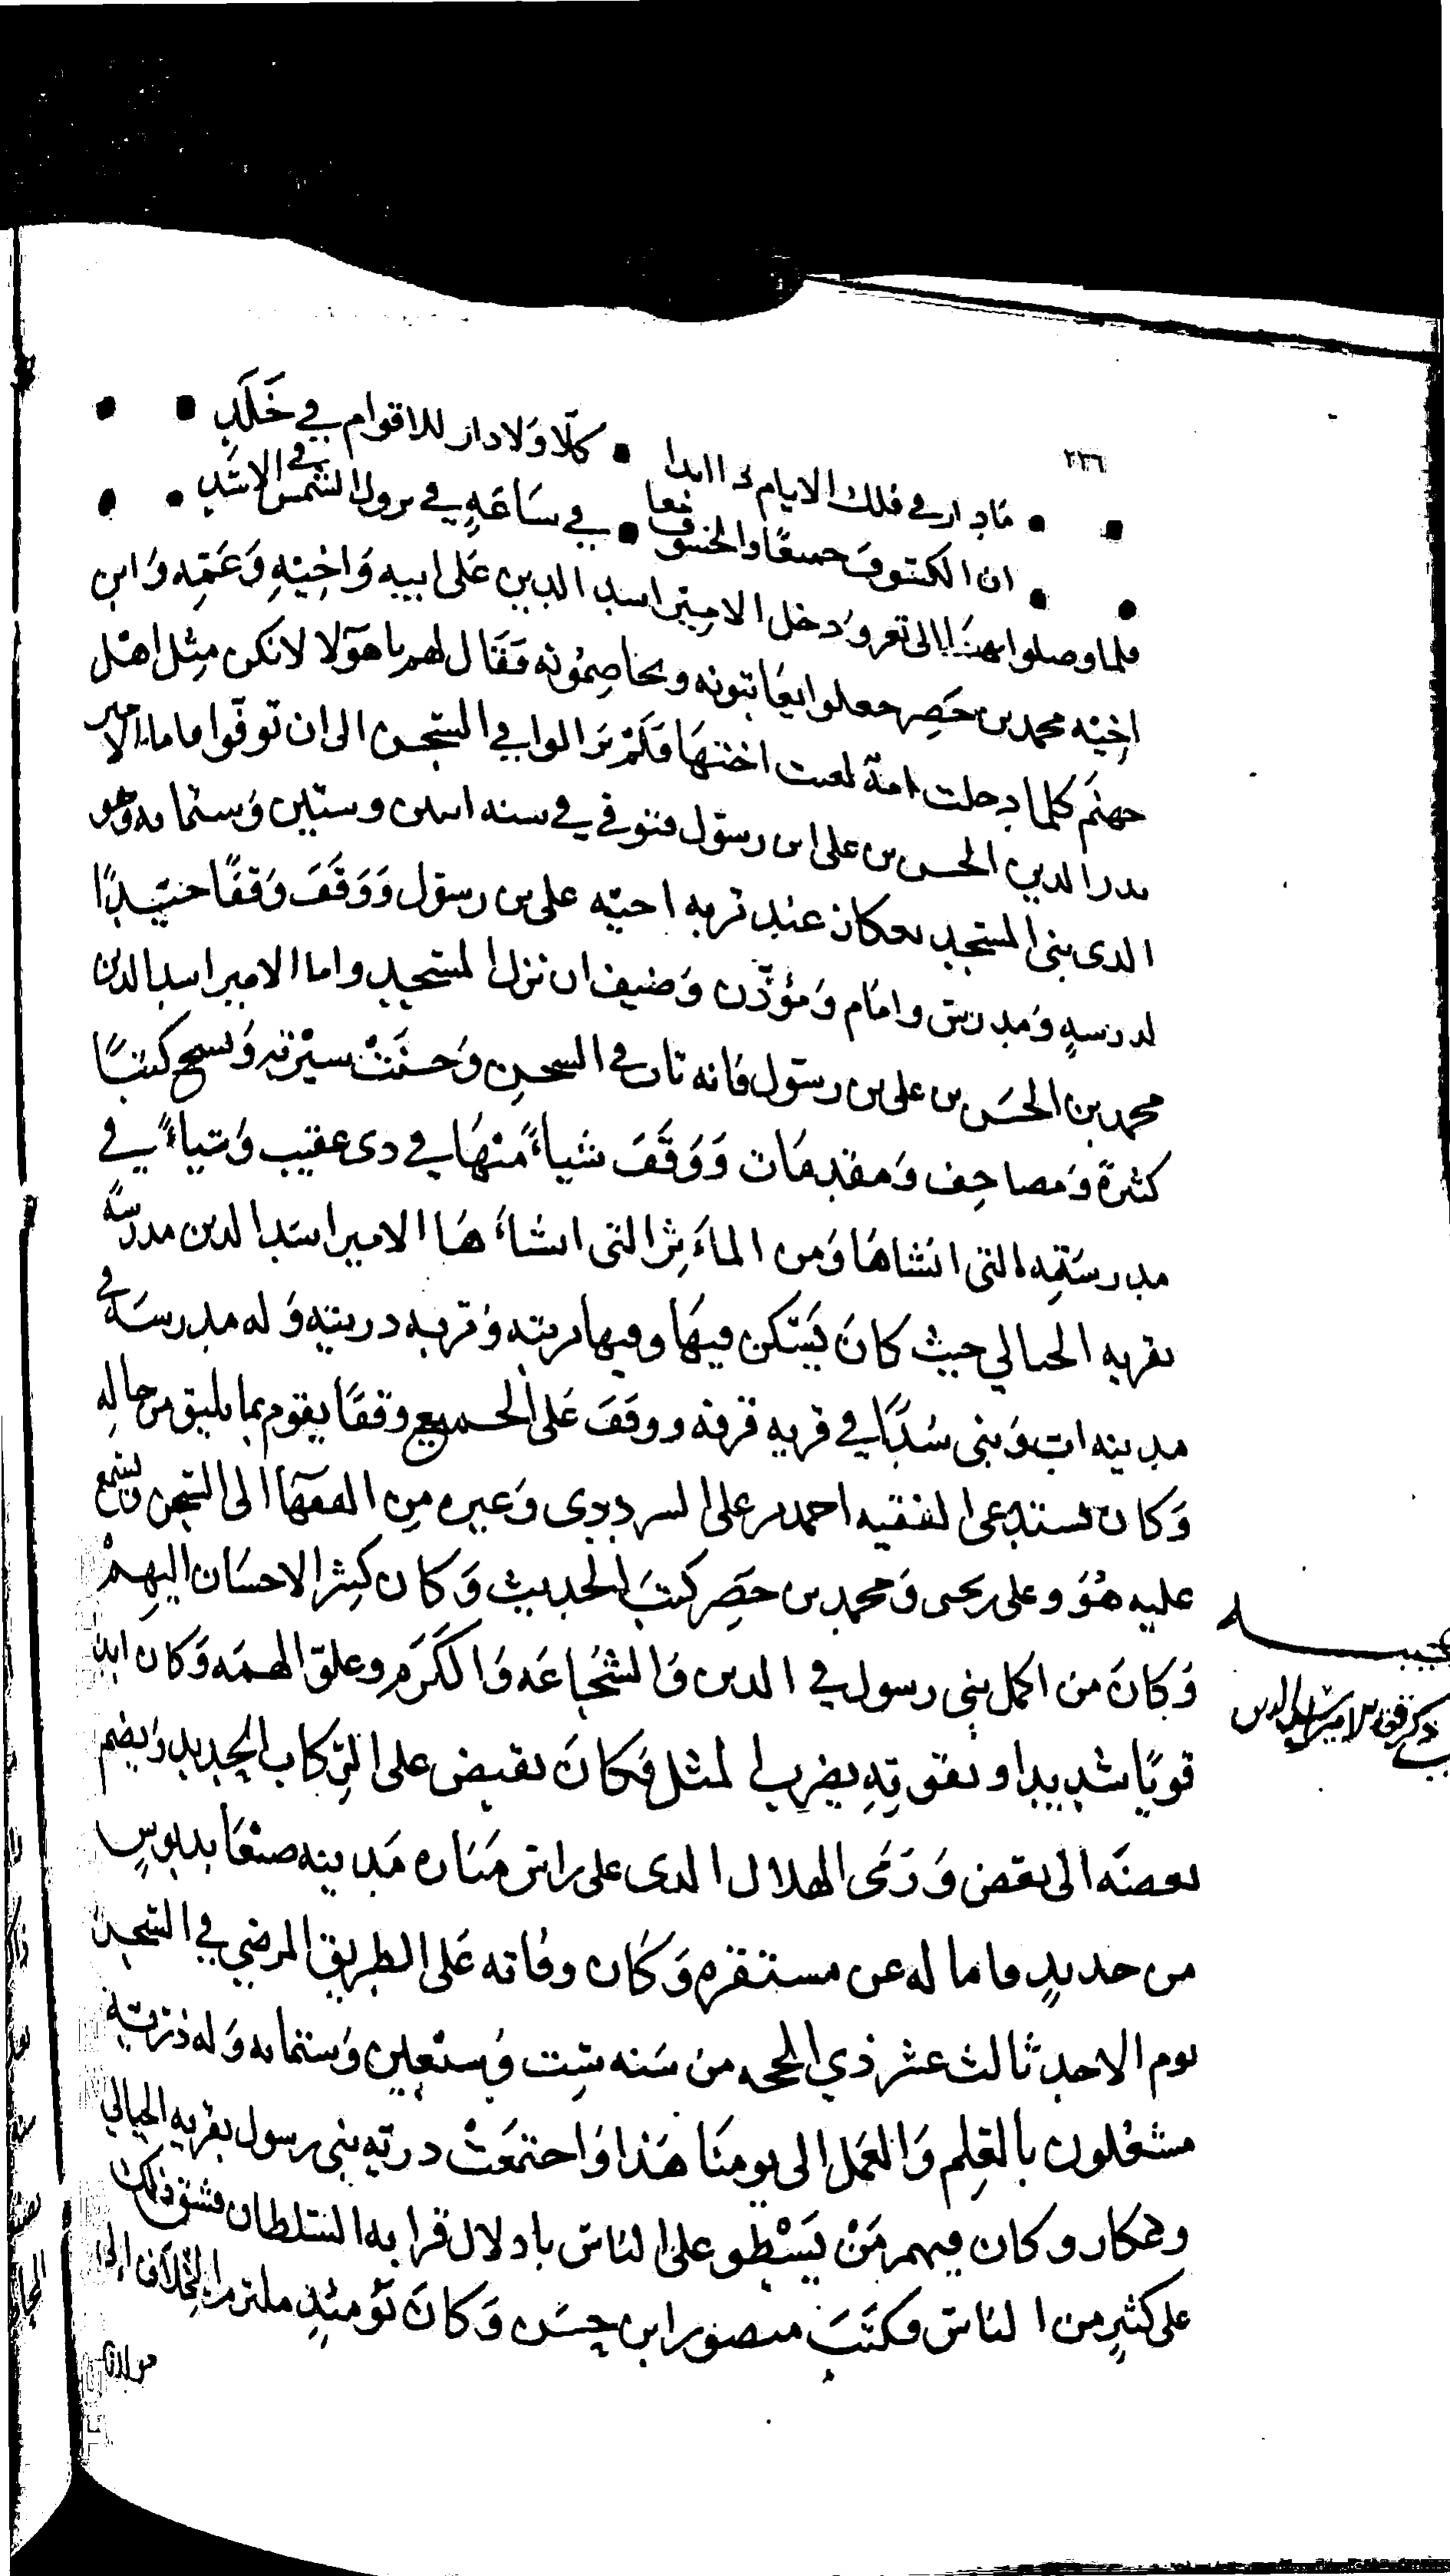 ٢٣٦
ما دار في فلك الايام ذا ابدا • كلا ولا دار للاقوام في خلد
ان الكسوف جميعا والخسوف معا • في ساعة في نزول الشمس في الاسد
فلما وصلوا بهذا الى تعز ودخل الامير اسد الدين على ابيه واخيه وعمه وابن
اخيه محمد بن خضر جعلوا يعاتبونه ويخاصمونه فقال لهم يا هؤلا لا نكن مثل اهل
جهنم كلما دخلت امة لعنت اختها فلم يزالوا في السجن الى ان توفوا فاما الامير
بدر الدين الحسن بن علي ابن رسول فتوفي في سنه اثنين وستين وستمايه وهو
الذي بنى المسجد بعكار عند تربه اخيه علي بن رسول ووقف وقفا جيدا
لدرسه ومدرس وامام ومؤذن وضيف ان نزل المسجد واما الامير اسد الدين
محمد بن الحسن بن علي بن رسول فانه تاب في السجن وحسنت سيرته ونسخ كتبا
كثرة ومصاحف ومقدمات ووقف شياء منها في ذي عقيب وشياء في
مدرسته التي انشاها ومن الماءثر التي انشاءها الامير اسد الدين مدرسة
بقريه الحبالي حيث كان يسكن فيها وفيها تربته وتربه ذريته وله مدرسة في
مدينه اب وبنى سدا في قريه قرفه ووقف على الجميع وقفا يقوم بما يليق من حاله
وكان يستدعي الفقيه احمد بن علي السرددي وغيره من الفقها الى السجن ويسمع
عليه هو وعلي بن يحيى ومحمد بن خضر كتب الحديث وكان كثير الاحسان اليهم
وكان من اكمل بني رسول في الدين والشجاعه والكرم وعلو الهمه وكان ايدا
قويا شديدا وبقوته يضرب المثل فكان يقبض على الركاب الحديد ويضم
بعضه الى بعض ورمى الهلال الذي على راس مناره مدينه صنعا بدبوس
من حديد فاماله عن مستقره وكان وفاته على الطريق المرضي في السجن
يوم الاحد ثالث عشر ذي الحجه من سنه ست وسبعين وستمايه وله ذرية
مشغلون بالعلم والعمل الى يومنا هذا واجتمعت ذرته بني رسول بقريه الحبالي
وعكار وكان فيهم من يسطو على الناس بادلال قرابه السلطان فشق ذلك
على كثير من الناس فكتب منصور ابن حسن وكان يومئذ ملتزما المخلاف الى
مولانا
ذكر قوة الامير اسد الدين